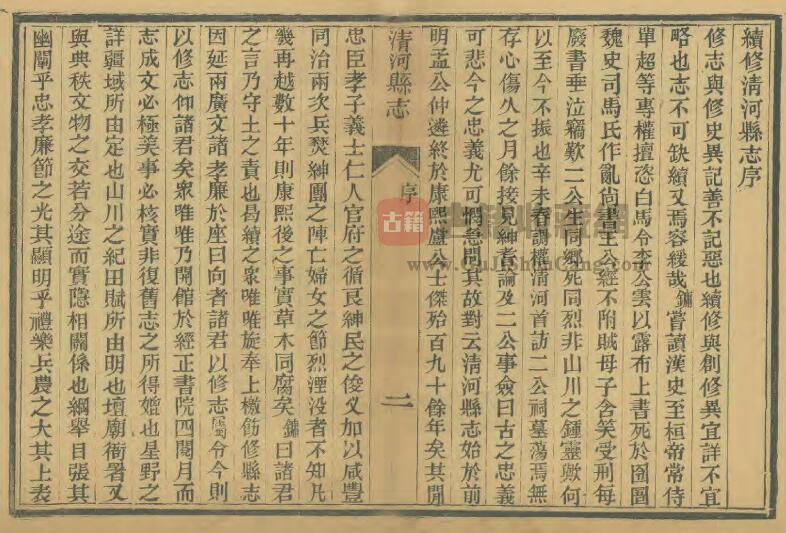 續修清河縣志序
修志與修史異記善不記惡也續修與創修異宜詳不宜
略也志不可缺續又焉容緩哉鏞嘗讀漢史至桓帝常侍
單超等專權擅恣白馬令李公雲以露布上書死於囹圄
魏史司馬氏作亂尚書王公經不附賊母子含笑受刑每
廢書垂泣竊歎二公生同鄉死同烈非山川之鍾靈歟何
以至今不振也辛未春調權清河首訪二公祠墓蕩焉無
存心傷久之月餘接見紳耆論及二公事僉曰古之忠義
可悲今之忠義尤可憫急問其故對云清河縣志始於前
明孟公仲遴終於康熙盧公士傑殆百九十餘年矣其間
清河縣志
序
二
忠臣孝子義士仁人官府之循良紳民之俊乂加以咸豐
同治兩次兵燹紳團之陣亡婦女之節烈湮没者不知凡
幾再越數十年則康熙後之事實草木同腐矣鏞曰諸君
之言乃守土之責也曷續之衆唯唯旋奉上檄飭修縣志
因延兩廣文諸孝廉於座曰向者諸君以修志屬令今則
以修志仰諸君矣衆唯唯乃開館於經正書院四閱月而
志成文必極美事必核實非復舊志之所得媲也星野之
詳疆域所由定也山川之紀田賦所由明也壇廟衙署又
與典秩文物之交若分途而實隱相關係也綱舉目張其
幽闡乎忠孝廉節之光其顯明乎禮樂兵農之大其上表
古籍
www.GuJiShuCang.com